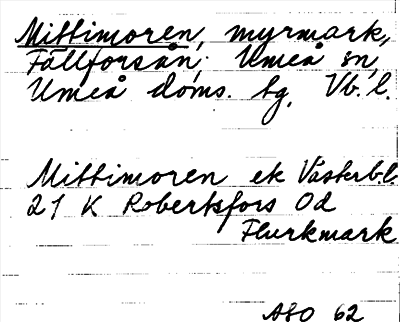 Mittimoren, myrmark,
Fällforsån, Umeå sn,
Umeå doms. hg, Vb. l.
Mittimoren ek Västerbl.
21 K Robertsfors 0d
Flurkmark
ASO 62